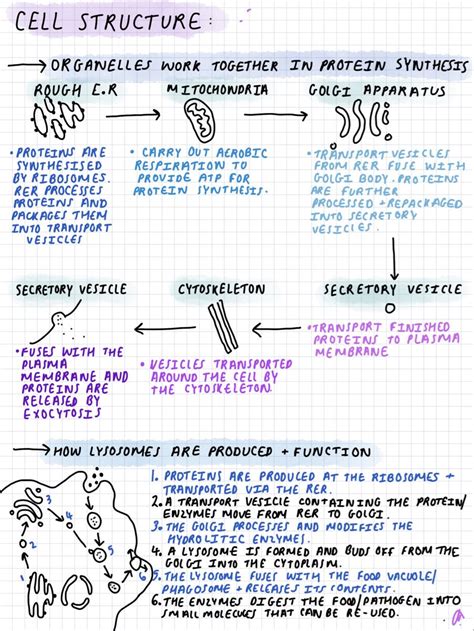 CELL STRUCTURE:
→ ORGANELLES WORK TOGETHER IN PROTEIN SYNTHESIS
ROUGH E.R
MITOCHONDRIA
GOLGI APPARATUS
• PROTEINS ARE
SYNTHESISED
BY RIBOSOMES.
RER PROCESSES
PROTEINS AND
PACKAGES THEM
INTO TRANSPORT
VESICLES
• CARRY OUT AEROBIC
RESPIRATION TO
PROVIDE ATP FOR
PROTEIN SYNTHESIS.
• TRANSPORT VESICLES
FROM RER FUSE WITH
GOLGI BODY. PROTEINS
ARE FURTHER
PROCESSED + REPACKAGED
INTO SECRETORY
VESICLES.
SECRETORY VESICLE
CYTOSKELETON
SECRETORY VESICLE
• FUSES WITH THE
PLASMA
MEMBRANE AND
PROTEINS ARE
RELEASED BY
EXOCYTOSIS
• VESICLES TRANSPORTED
AROUND THE CELL BY
THE CYTOSKELETON.
• TRANSPORT FINISHED
PROTEINS TO PLASMA
MEMBRANE
→ HOW LYSOSOMES ARE PRODUCED + FUNCTION
1
2
3
4
5
6
1. PROTEINS ARE PRODUCED AT THE RIBOSOMES +
TRANSPORTED VIA THE RER.
2. A TRANSPORT VESICLE CONTAINING THE PROTEIN/
ENZYMES MOVE FROM RER TO GOLGI.
3. THE GOLGI PROCESSES AND MODIFIES THE
HYDROLITIC ENZYMES.
4. A LYSOSOME IS FORMED AND BUDS OFF FROM THE
GOLGI INTO THE CYTOPLASM.
5. THE LYSOSOME FUSES WITH THE FOOD VACUOLE/
PHAGOSOME + RELEASES ITS CONTENTS.
6. THE ENZYMES DIGEST THE FOOD/PATHOGEN INTO
SMALL MOLECULES THAT CAN BE RE-USED.